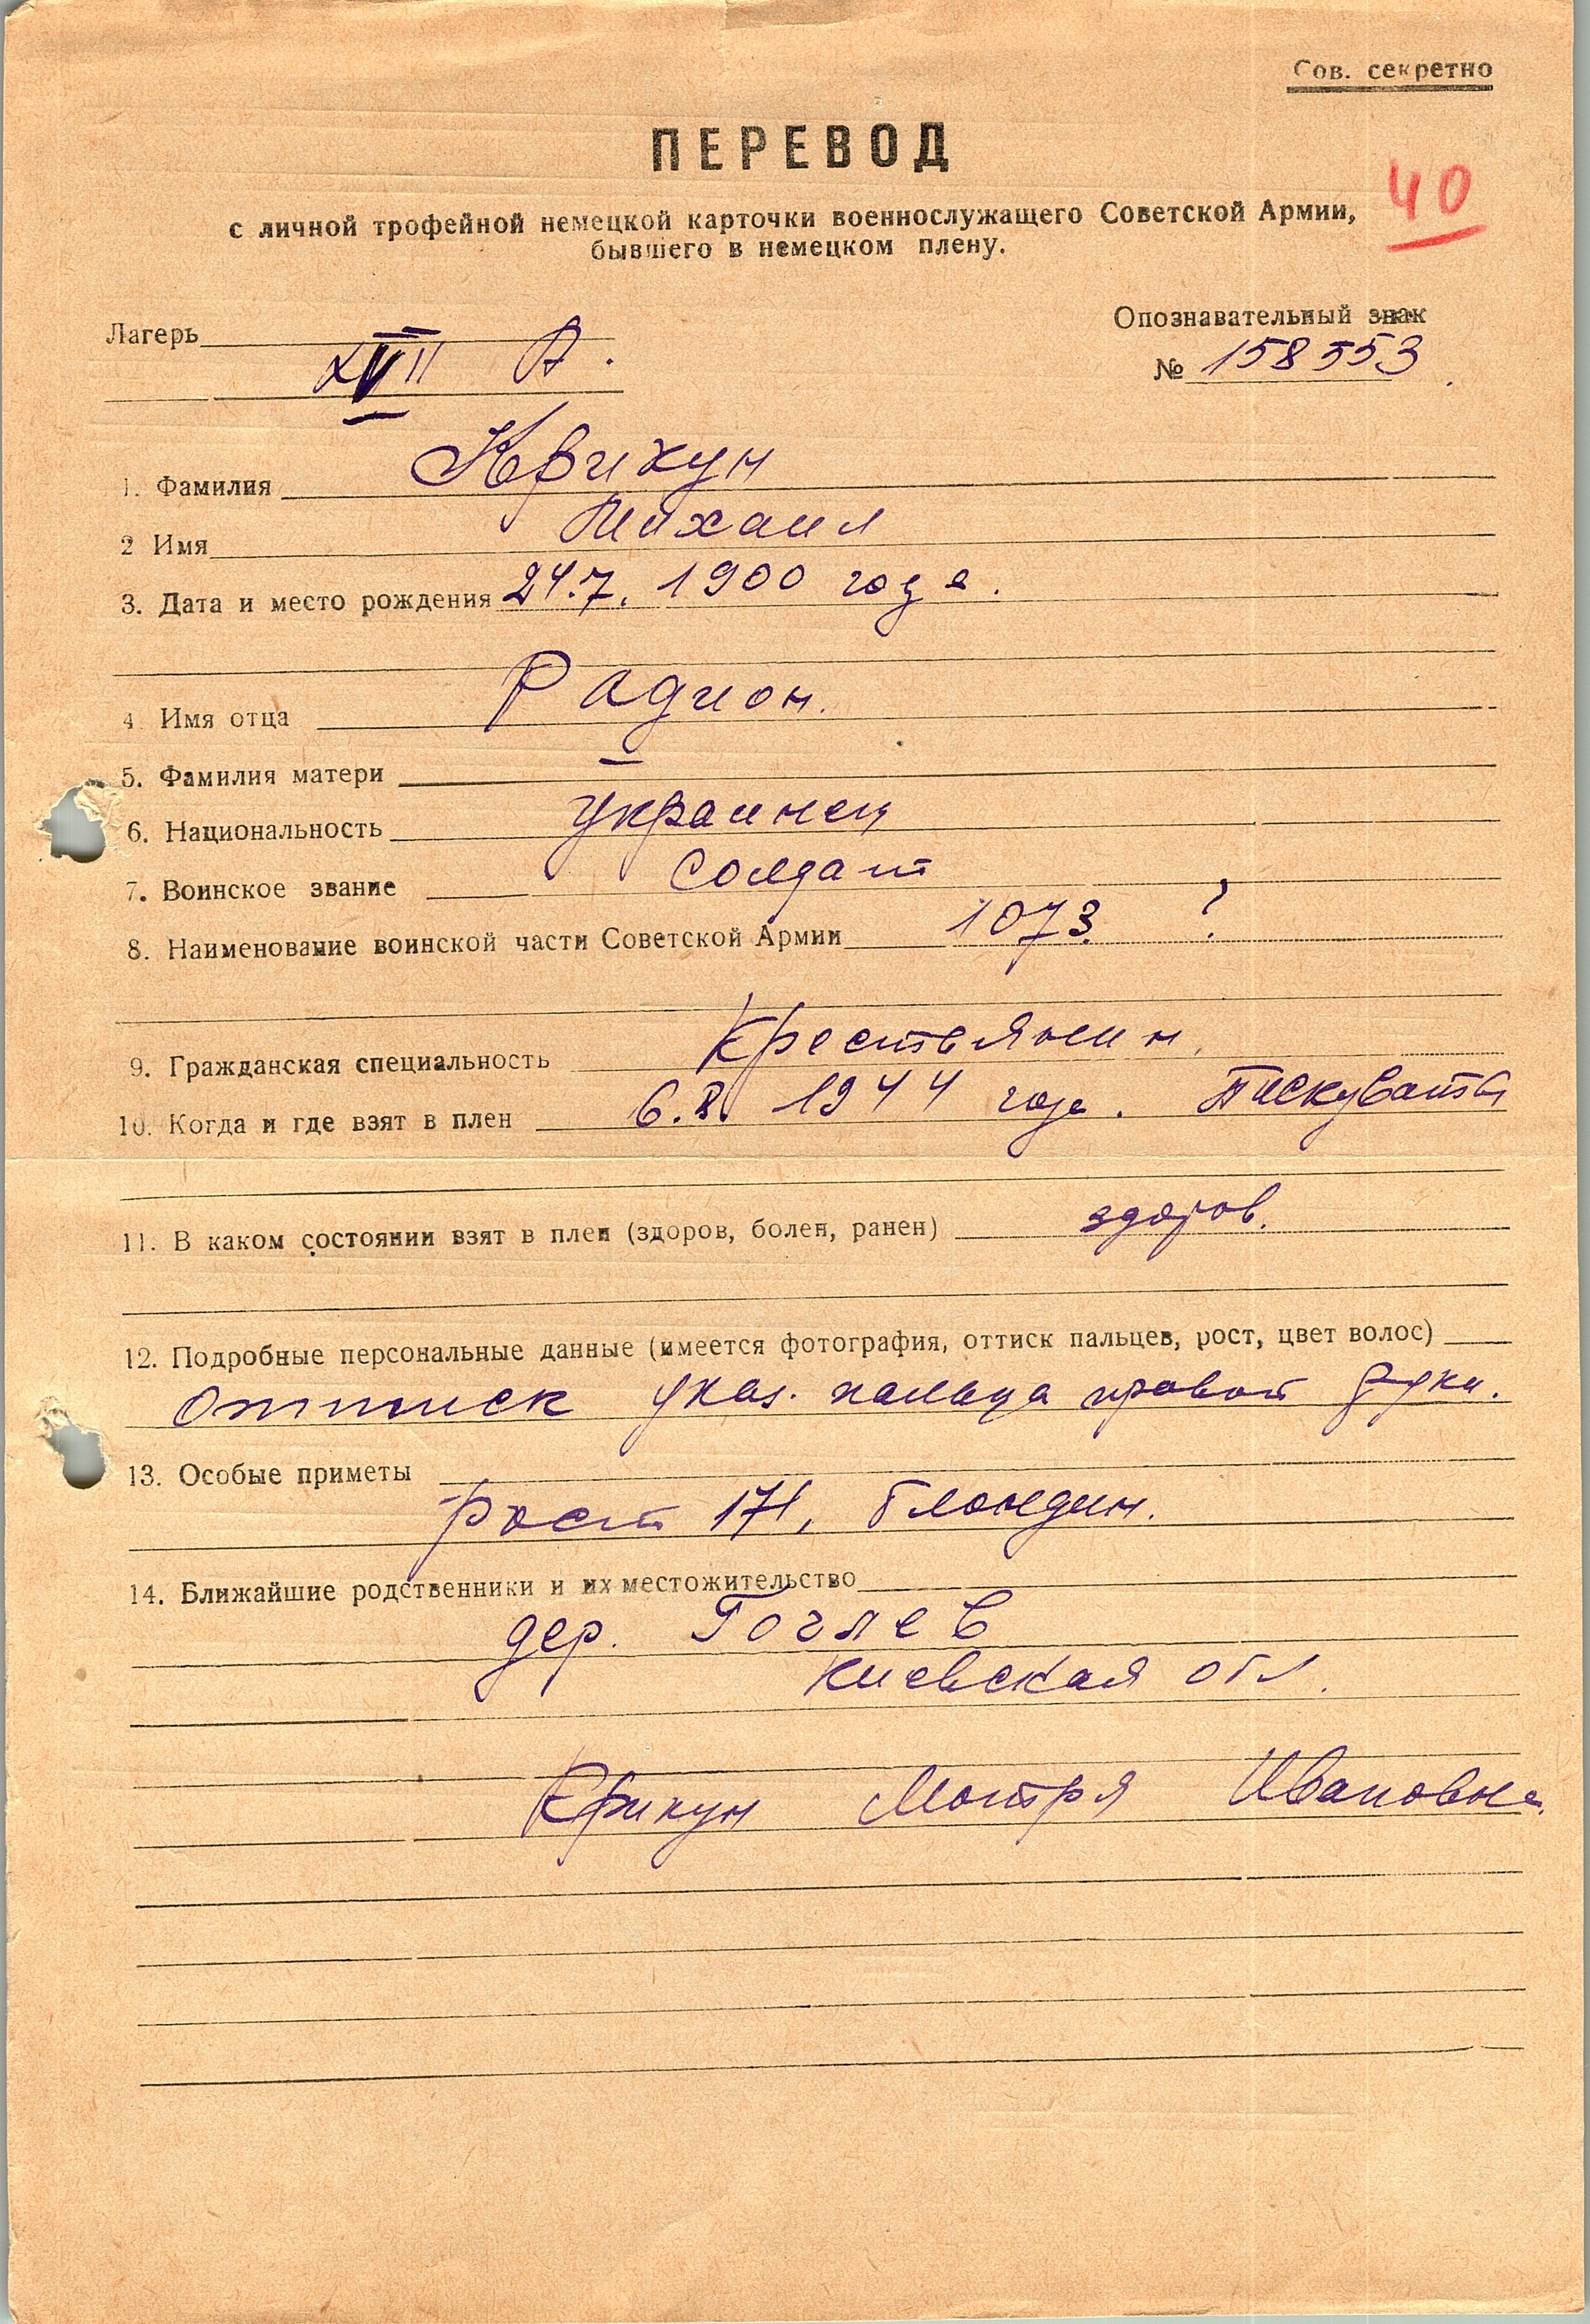 Сов. секретно
ПЕРЕВОД
40
с личной трофейной немецкой карточки военнослужащего Советской Армии,
бывшего в немецком плену.
Лагерь
XVII А.
Опознавательный знак
№ 158553.
1. Фамилия Крикун
2 Имя Михаил
3. Дата и место рождения 24.7.1900 года.
4. Имя отца Радион.
5. Фамилия матери —
6. Национальность украинец
7. Воинское звание солдат
8. Наименование воинской части Советской Армии 1073. ?
9. Гражданская специальность Крестьянин.
10. Когда и где взят в плен 6.8. 1944 года.
11. В каком состоянии взят в плен (здоров, болен, ранен) здоров.
12. Подробные персональные данные (имеется фотография, оттиск пальцев, рост, цвет волос)
Оттиск указ. пальца правой руки.
13. Особые приметы
Рост 171, блондин.
14. Ближайшие родственники и их местожительство
дер. Гоглев
Киевская обл.
Крикун Мотря Ивановна.